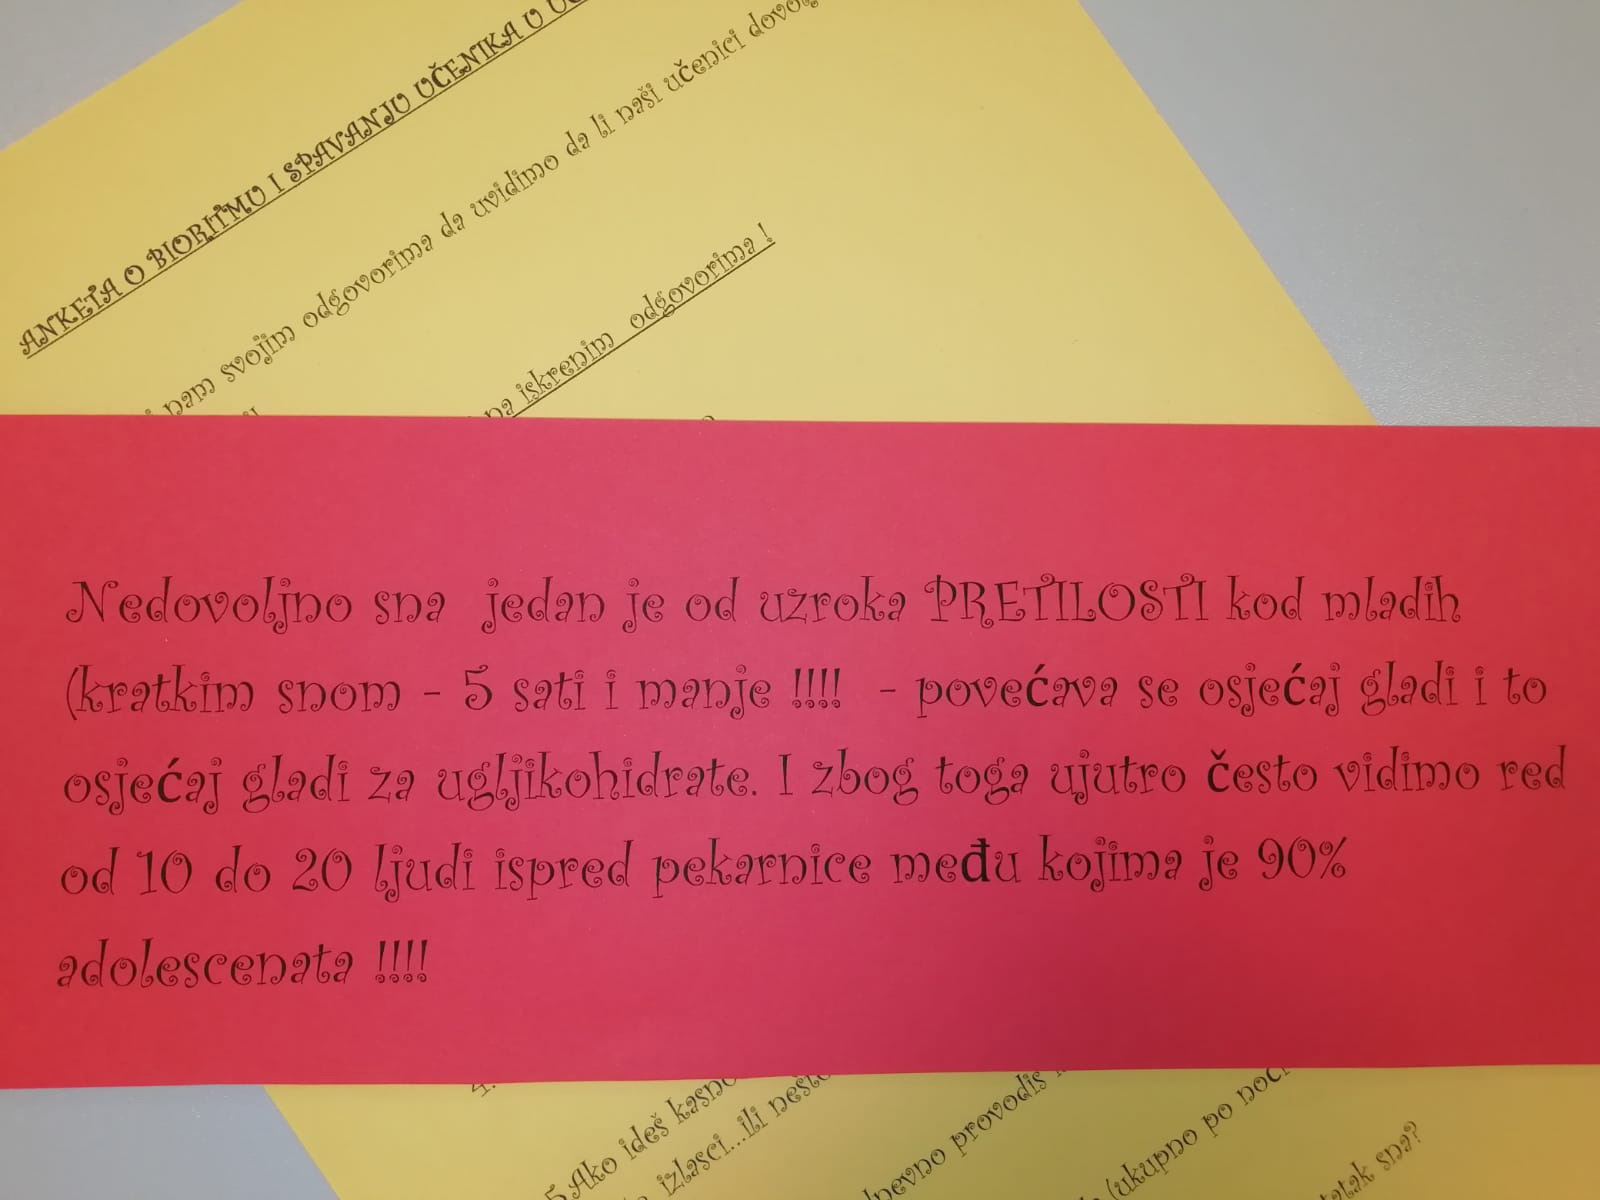 ANKETA O BIORITMU I SPAVANJU UČENIKA U
nam svojim odgovorima da uvidimo da li naši učenici
na iskrenim odgovorima !
Nedovoljno sna jedan je od uzroka PRETILOSTI kod mladih
(kratkim snom - 5 sati i manje !!!! - povećava se osjećaj gladi i to
osjećaj gladi za ugljikohidrate. I zbog toga ujutro često vidimo red
od 10 do 20 ljudi ispred pekarnice među kojima je 90%
adolescenata !!!!
4.
5.Ako ideš kasno
izlasci...ili nešto
provodiš
(ukupno po noći
sna?